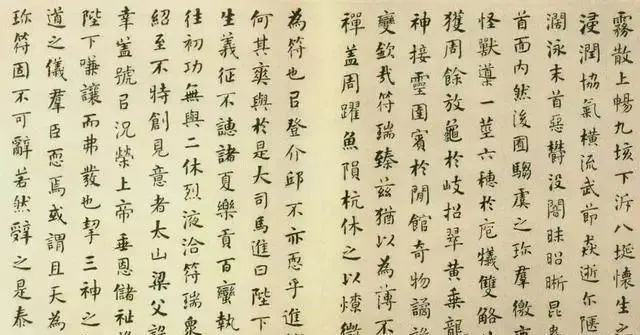 霧散上暢九垓下泝八埏懷生之
浸潤協氣橫流武節焱逝尔陿
濶泳末首惡鬱没闇昧昭晰昆
首面内然後囿騶虞之珎羣徼
怪獸導一莖六穗於庖犧雙觡
獲周餘放龜於岐招翠黃乘龍
神接靈圉賓於閒館奇物譎
變欽哉符瑞臻茲猶以為薄不
禪蓋周躍魚隕杭休之以燎
為符也㠯登介邱不亦恧乎進
何其爽與於是大司馬進曰陛下
生義征不譓諸夏樂貢百蠻執
往初功無與二休烈液洽符瑞衆
紹至不特創見意者太山梁父設
幸蓋號㠯況榮上帝垂恩儲祉
陛下嗛讓而弗發也挈三神之
道之儀羣臣恧焉或謂且天為
珎符固不可辭若然辭之是泰